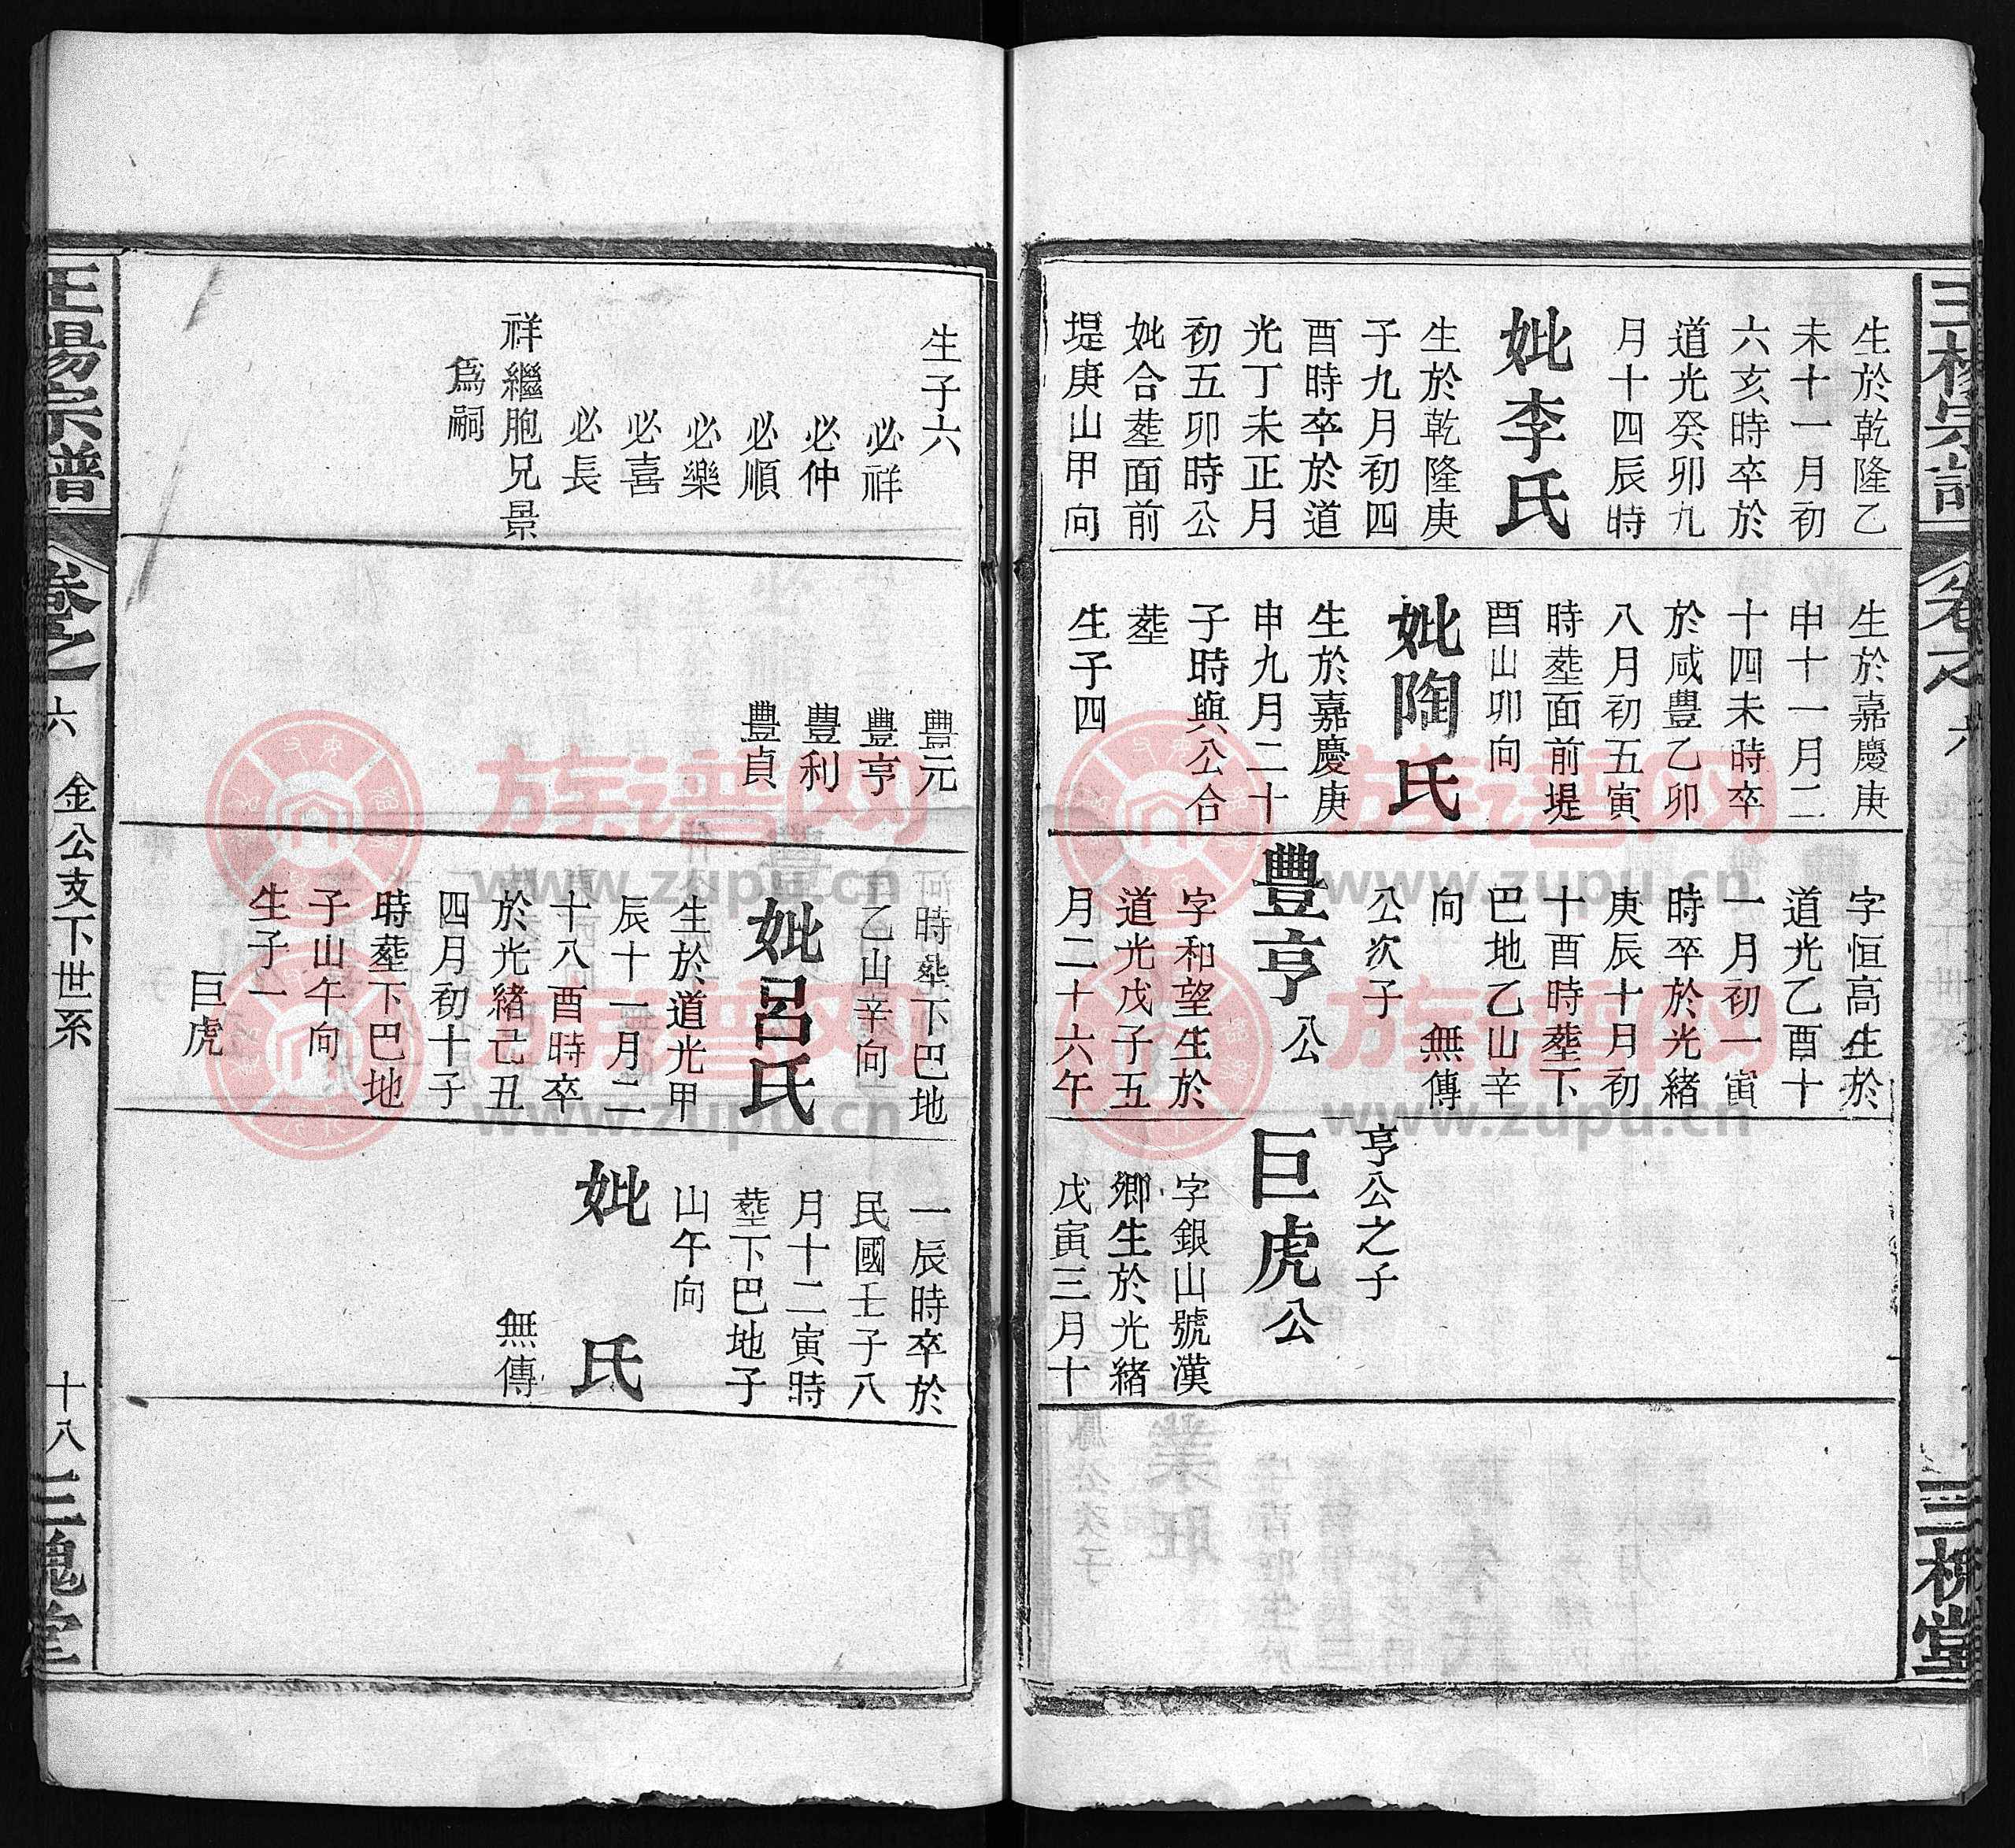 生於乾隆乙
未十一月初
六亥時卒於
道光癸卯九
月十四辰時
妣李氏
生於乾隆庚
子九月初四
酉時卒於道
光丁未正月
初五卯時公
妣合塟面前
堤庚山甲向
生於嘉慶庚
申十一月二
十四未時卒
於咸豐乙卯
八月初五寅
時塟面前堤
酉山卯向
妣陶氏
生於嘉慶庚
申九月二十
子時與公合
塟
生子四
字恒高生於
道光乙酉十
一月初一寅
時卒於光緒
庚辰十月初
十酉時塟下
巴地乙山辛
向 無傳
公次子
豐亨公
字和望生於
道光戊子五
月二十六午
亨公之子
巨虎公
字銀山號漢
卿生於光緒
戊寅三月十
三槐堂
生子六
必祥
必仲
必順
必樂
必喜
必長
祥繼胞兄景
爲嗣
豐元
豐亨
豐利
豐貞
時塟下巴地
乙山辛向
妣呂氏
生於道光甲
辰十一月二
十八酉時卒
於光緒己丑
四月初十子
時塟下巴地
子山午向
生子一
巨虎
一辰時卒於
民國壬子八
月十二寅時
塟下巴地子
山午向
妣 氏
無傳
王楊宗譜 卷之六 金公支下世系 十八 三槐堂
族谱网
www.zupu.cn
族谱网
www.zupu.cn
族谱网
www.zupu.cn
族谱网
www.zupu.cn